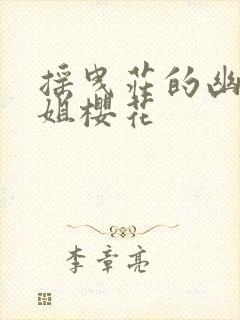 摇曳莊的幽
姐櫻花
李章亮